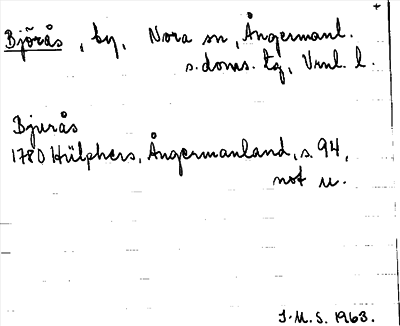 Björås, by, Nora sn, Ångermanl.
s. doms. tg, Vrnl. l.
Bjurås
1780 Hülphers, Ångermanland, s. 94,
not u.
J.M.S. 1963.